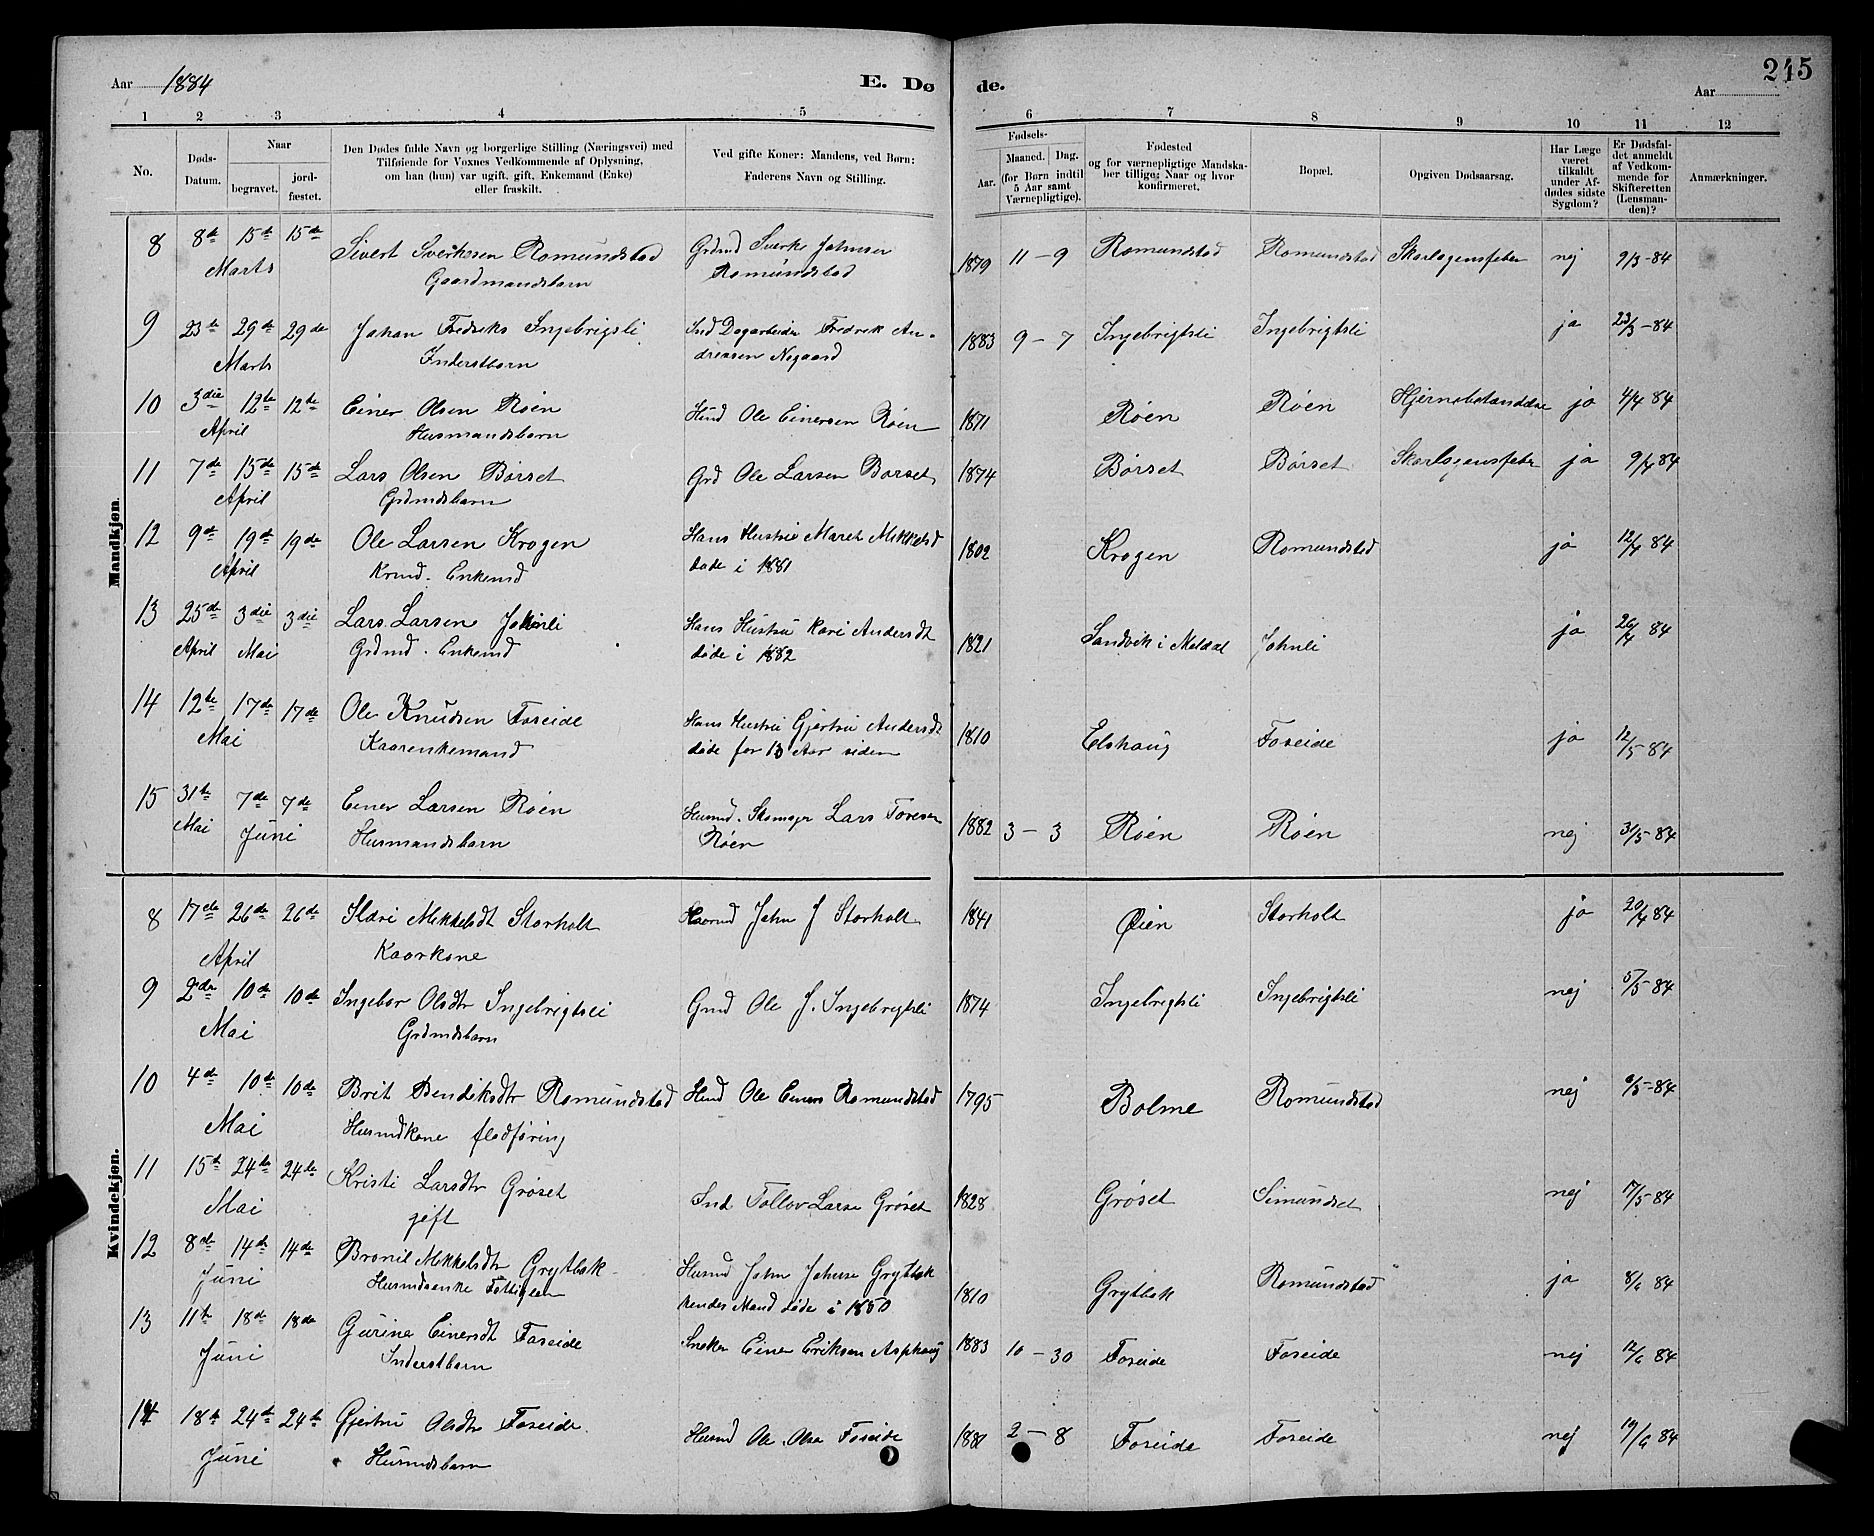 Aar 1884 E. Dø de. Aar 215
1 2 3 4 5 6 7 8 9 10 11 12
No. Døds-Datum. Naar begravet. jordfæstet. Den Dødes fulde Navn og borgerlige Stilling (Næringsvei) med Tilføiende for Voxnes Vedkommende af Oplysning, om han (hun) var ugift, gift, Enkemand (Enke) eller fraskilt. Ved gifte Koner: Mandens, ved Børn: Faderens Navn og Stilling. Fødsels- Aar. Maaned. Dag. (for Børn indtil 5 Aar samt Værnepligtige). Fødested og for værnepligtige Mandskaber tillige: Naar og hvor konfirmeret. Bopæl. Opgiven Dødsaarsag. Har Læge været tilkaldt under Afdødes sidste Sygdom? Er Dødsfaldet anmeldt af Vedkommende for Skifteretten (Lensmanden)? Anmærkninger.
Mandkjøn.
8 8de 15de 15de Sivert Sverkesen Romundstad Grdmd Sverke Johnsen 1879 11 - 9 Romundstad Romundstad Skarlagensfeber nej 9/3-84
Marts Gaardmandsbarn Romundstad
9 23de 29de 29de Johan Fredriks Ingebrigsli Ind Dagarbeider Fredrik An- 1883 9 - 7 Ingebrigtsli Ingebrigtsli ja 23/3-84
Marts Inderstbarn dreassen Nygaard
10 3die 12te 12te Einer Olsen Røen Husmd Ole Einersen Røen 1871 Røen Røen Hjernebetændelse ja 4/4 84
April Husmandsbarn
11 7de 15de 15de Lars Olsen Børset Grd Ole Larsen Børset 1874 Børset Børset Skarlagensfeber ja 9/4 84
April Grdmdsbarn
12 9de 19de 19de Ole Larsen Krogen Hans Hustru Maret Mikkelsd 1802 Krogen Romundstad ja 12/4 84
April Enkemd døde i 1881
13 25de 3die 3die Lars Larsen Johnli Hans Hustru Kari Andersdt 1821 Sandvik i Meldal Johnli ja 26/4 84
April Mai Grdmd. Enkemd døde i 1882
14 12te 17de 17de Ole Knudsen Foseide Hans Hustru Gjertru Andersdt 1810 Elshaug Foseide ja 12/5-84
Mai Kaarenkemand døde for 13 Aar siden
15 31te 7de 7de Einer Larsen Røen Husmd. Skomager Lars Toresen 1882 3 - 3 Røen Røen nej 31/5-84
Mai Juni Husmandsbarn Røen
Kvindekjøn.
8 17de 26de 26de Mikkelsdt Storholt Kaarmd John J Storholt 1841 Øien Storholt ja 20/4 84
April Kaarkone
9 2den 10de 10de Ingebor Olsdtr Ingebrigtsli Gmd Ole J. Ingebrigtsli 1874 Ingebrigtsli Ingebrigtsli nej 5/5-84
Mai Grdmdsbarn
10 4de 10de 10de Brit Bendiksdtr Romundstad Husmd Ole Einers Romundstad 1795 Bolme Romundstad nej 6/5-84
Mai Husmdkone
11 15de 24de 24de Kristi Larsdtr Grøset Ind Tollov Larse Grøset 1828 Grøset Simundset nej 17/5-84
Mai gift
12 8de 14de 14de Bronil Mikkelsdtr Grytbak Husmd John Johnse Grytbak 1810 Grytbak Romundstad ja 8/6 84
Juni Husmdsenke Fattiglem hendes Mand døde i 1850
13 11te 18de 18de Gurine Einersdt Foseide Sneker Einer Eriksen Asphaug 1883 10 - 30 Foseide Foseide nej 12/6 84
Juni Inderstbarn
14 18de 24de 24de Gjertru Olsdtr Foseide Husmd Ole Olse Foseide 1881 2 - 8 Foseide Foseide nej 19/6 84
Juni Husmdsbarn